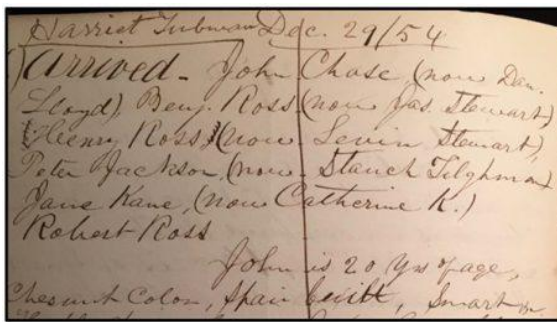 Harriet Tubman Dec. 29/54
Arrived - John Chase, (now Dan.
Lloyd), Benj. Ross (now Jas. Stewart)
(Henry Ross,) (now Levin Stewart),
Peter Jackson, (now Stauch Tilghman)
Jane Kane, (now Catherine K.)
Robert Ross
John is 20 yrs of age,
Chesnut Color, Spair built, Smart